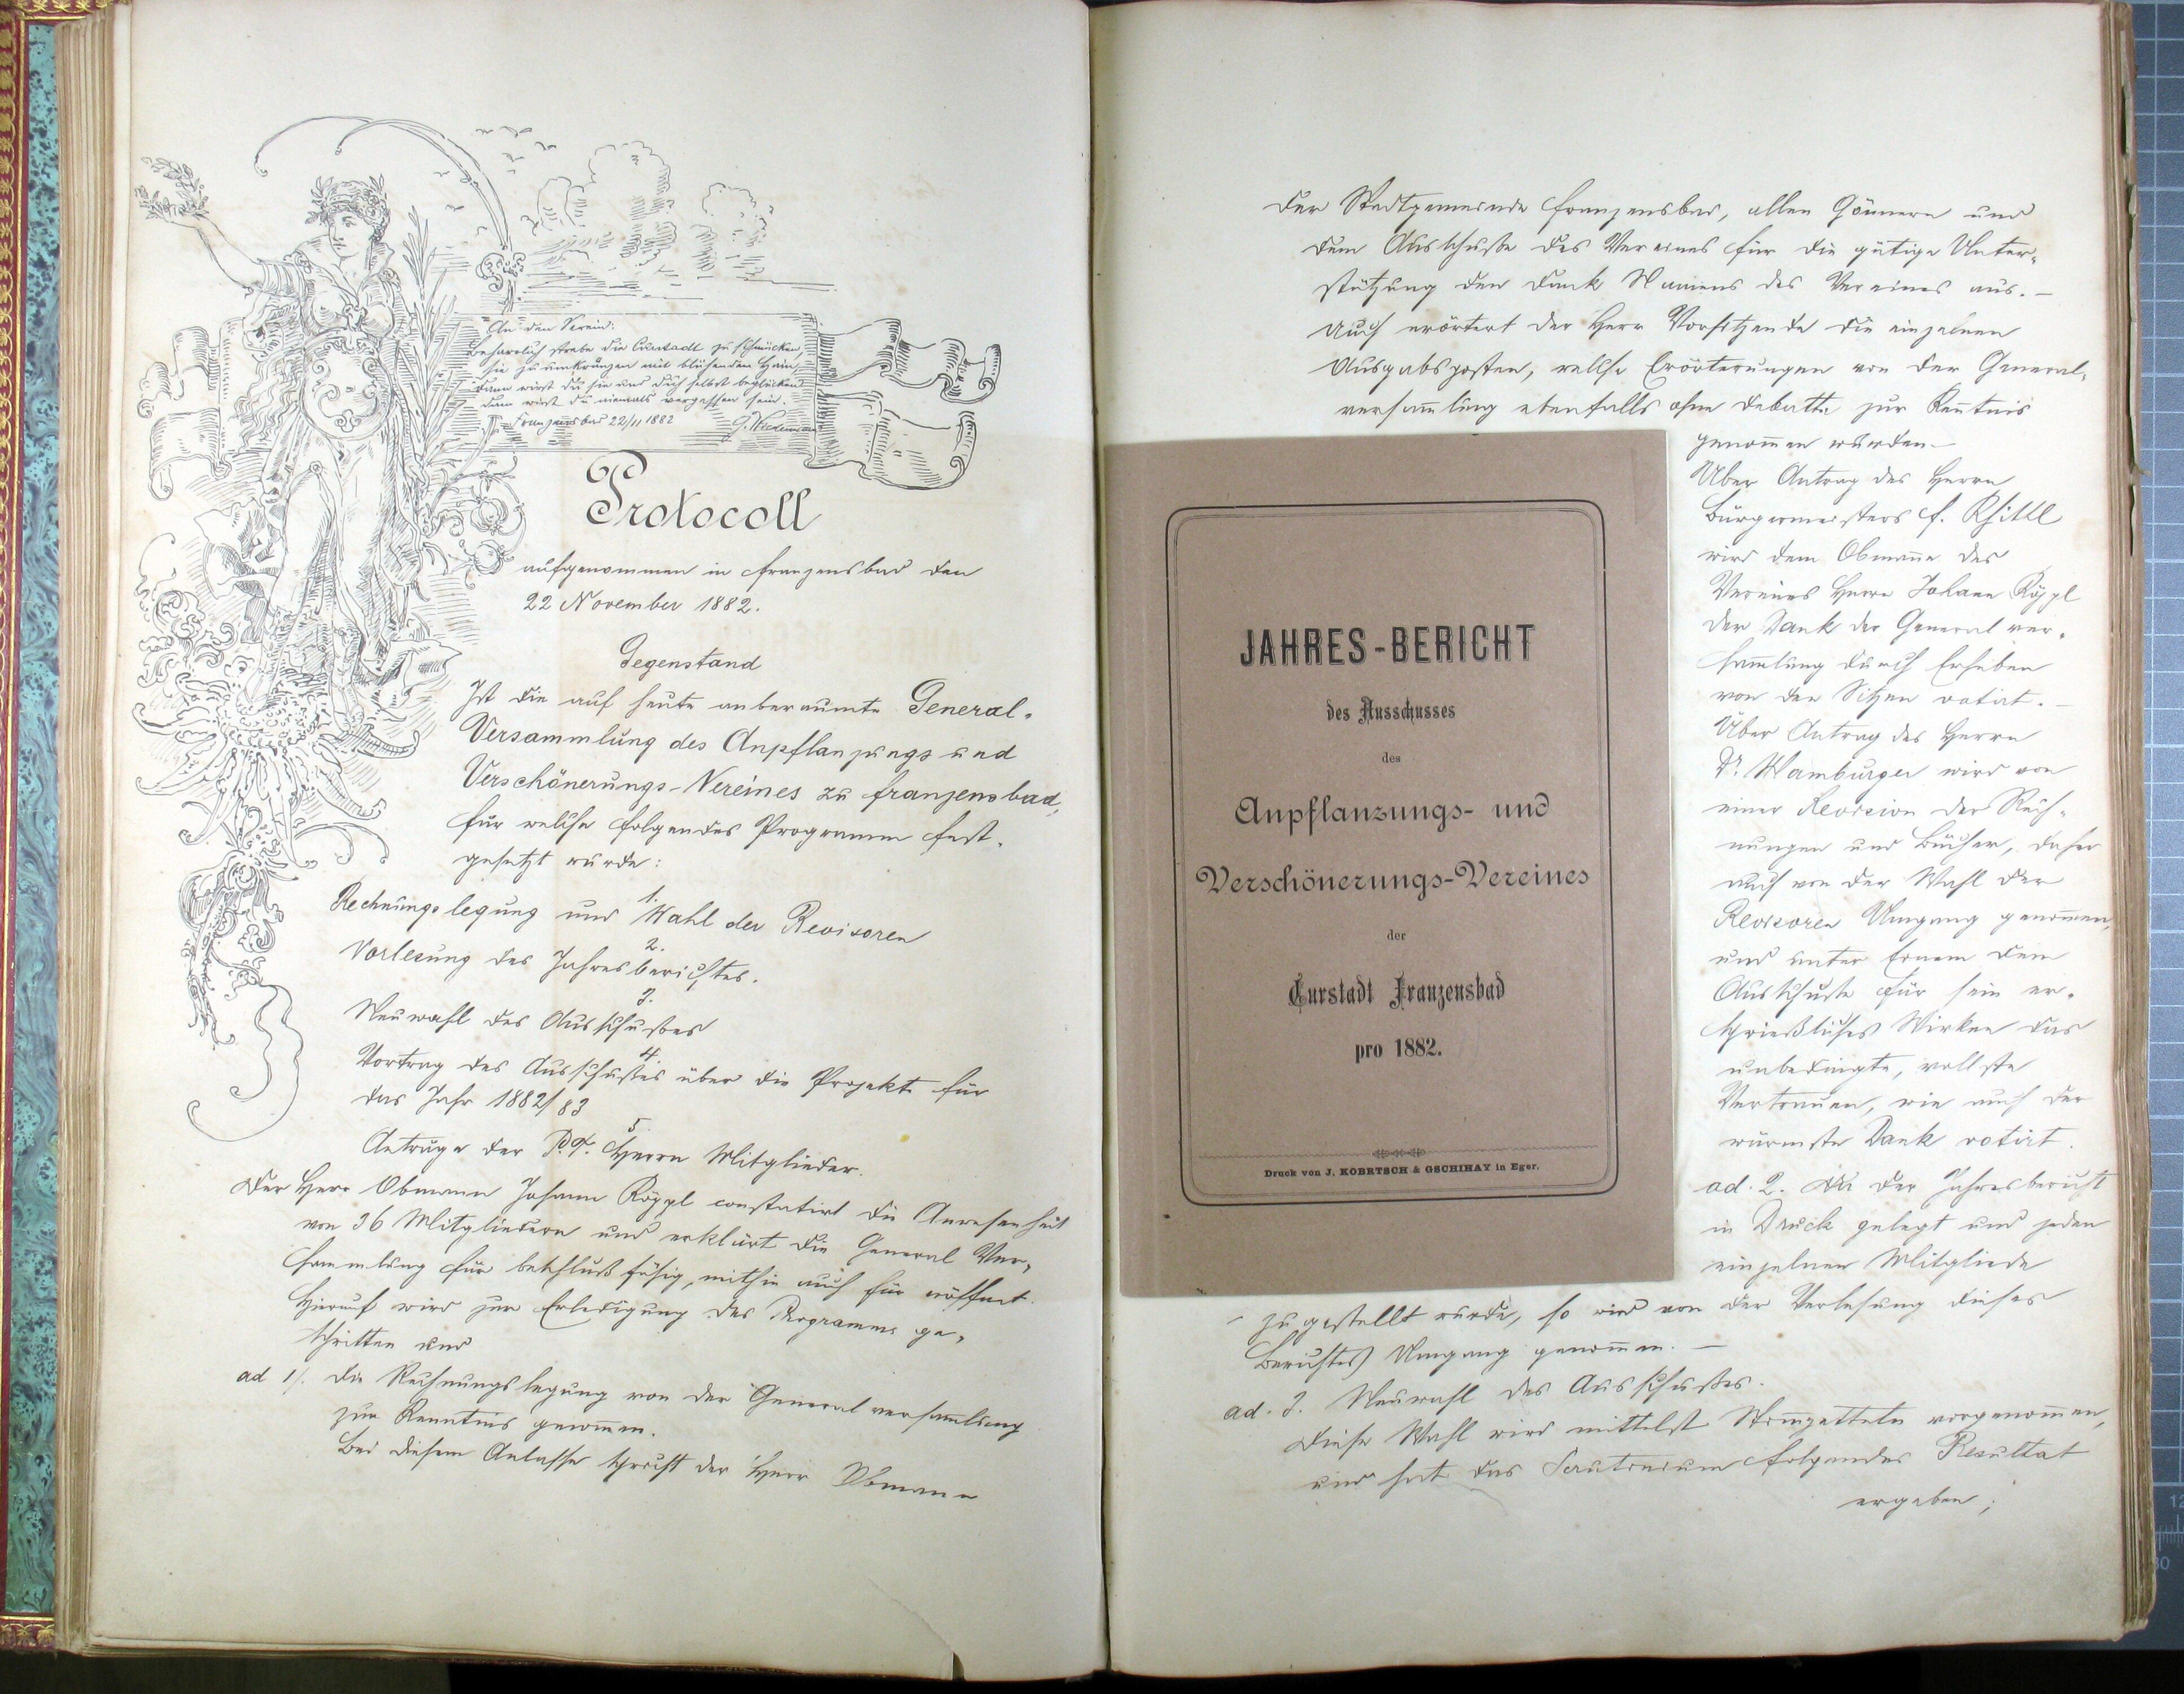 An den Verein:
Beharrlich strebe die Curstadt zu schmücken,
sie zu umkränzen mit blühendem Hain,
dann wirst du sie und dich selbst beglücken
dann wirst du niemals vergessen sein.
Franzensbad 22/11 1882
Protocoll
aufgenommen in Franzensbad den
22 November 1882.
Gegenstand
Ist die auf heute anberaumte General-
Versammlung des Anpflanzungs und
Verschönerungs-Vereines zu Franzensbad,
für welche folgendes Programm fest-
gesetzt wurde:
1.
Rechnungslegung und Wahl der Revisoren
2.
Vorlesung des Jahresberichtes.
3.
Neuwahl des Ausschußes
4.
Vortrag des Ausschußes über die Projekte für
das Jahr 1882/83
5.
Anträge der P.T. Herrn Mitglieder.
Der Herr Obmann Johann Köppl constatirt die Anwesenheit
von 36 Mitgliedern und erklärt die General Ver-
sammlung für beschlußfähig, mithin auch für eröffnet.
Hierauf wird zur Erledigung des Programms ge-
schritten und
ad 1/. die Rechnungslegung von der Generalversam̄lung
zur Kenntnis genom̄en.
Bei diesem Anlasse spricht der Herr Obmann
der Stadtgemeinde Franzensbad, allen Gönnern und
dem Ausschuße des Vereines für die gütige Unter-
stützung den Dank Namens des Vereines aus. –
Auch erörtert der Herr Vorsitzende die einzelnen
Ausgabsposten, welche Erörterungen von der General-
versam̄lung ebenfalls ohne Debatte zur Ken̄tnis
genom̄en wurden –
Über Antrag des Herrn
Bürgermeisters F.
wird dem Obman̄e des
Vereines Herrn Johann Köppl
der Dank der General ver-
sam̄lung durch Erheben
von den Sitzen votirt. –
Über Antrag des Herrn
Dr. Hamburger wird von
einer Revision der Rech-
nungen und Bücher, daher
auch von der Wahl der
Revisoren Umgang genom̄en,
und unter Einem dem
Ausschuße für sein er-
sprießliches Wirken das
unbedingte, vollste
Vertrauen, wie auch der
wärmste Dank votirt.
ad. 2. Da der Jahresbericht
in Druck gelegt und jeden
einzelnen Mitgliede
zugestellt wurde, so wird von der Verlesung dieses
Berichtes Umgang genom̄en. –
ad. 3. Neuwahl des Ausschußes.
Diese Wahl wird mittelst Stim̄zetteln vorgenom̄en,
und hat das Scrutinium folgendes Resultat
ergeben;
JAHRES-BERICHT
des Ausschusses
des
Anpflanzungs- und
Verschönerungs-Vereines
der
Curstadt Franzensbad
pro 1882.
Druck von J. KOBRTSCH & GSCHIHAY in Eger.